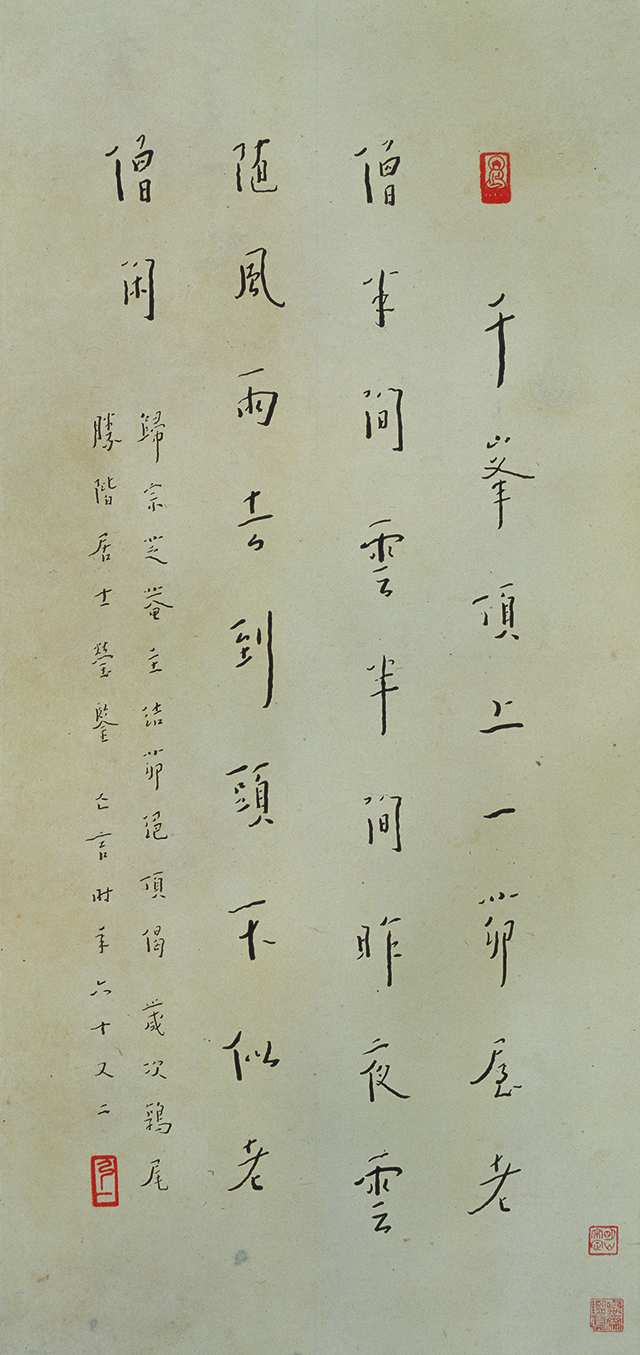 千峯頂上一茆屋老
僧半間雲半間昨夜雲
随風雨去到頭不似老
僧閑
歸宗芝菴主結茆絕頂偈歲次鶏尾
勝階居士瑩鑒 亡言時年六十又二
弘一